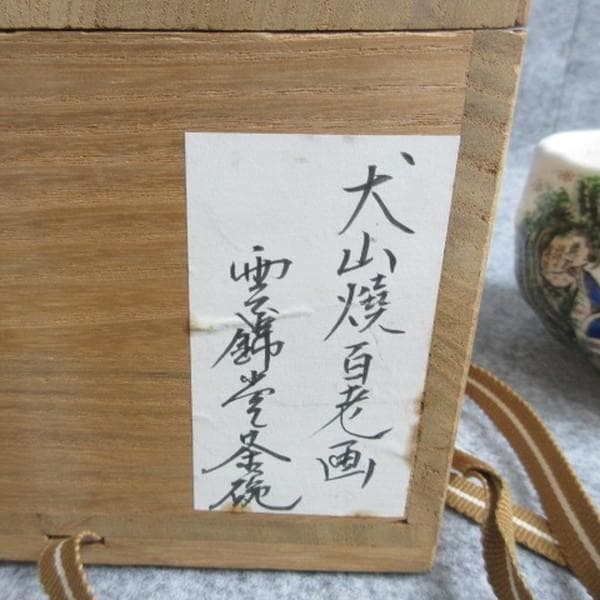 犬山燒百老画
雲錦堂茶碗